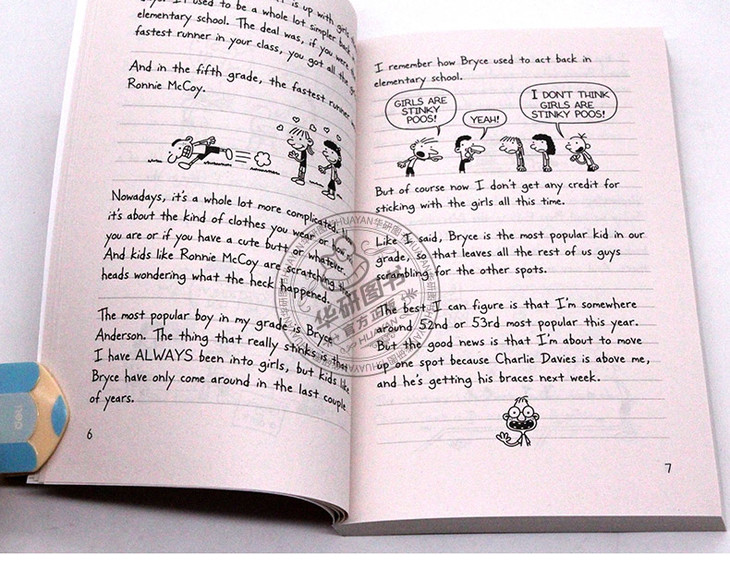 I used to be a whole lot simpler back
elementary school. The deal was, if you were the
fastest runner in your class, you got all the
And in the fifth grade, the fastest runner
Ronnie McCoy.
Nowadays, it's a whole lot more complicated.
it's about the kind of clothes you wear or how
you are or if you have a cute butt or whatever.
And kids like Ronnie McCoy are scratching
heads wondering what the heck happened.
The most popular boy in my grade is Bryce
Anderson. The thing that really stinks is that
I have ALWAYS been into girls, but kids like
Bryce have only come around in the last couple
of years.
6
I remember how Bryce used to act back in
elementary school.
GIRLS ARE
STINKY
POOS!
YEAH!
I DON'T THINK
GIRLS ARE
STINKY POOS!
But of course now I don't get any credit for
sticking with the girls all this time.
Like I said, Bryce is the most popular kid in our
grade, so that leaves all the rest of us guys
scrambling for the other spots.
The best I can figure is that I'm somewhere
around 52nd or 53rd most popular this year.
But the good news is that I'm about to move
up one spot because Charlie Davies is above me,
and he's getting his braces next week.
7
华研图书
官方正品
HUAYAN
deli